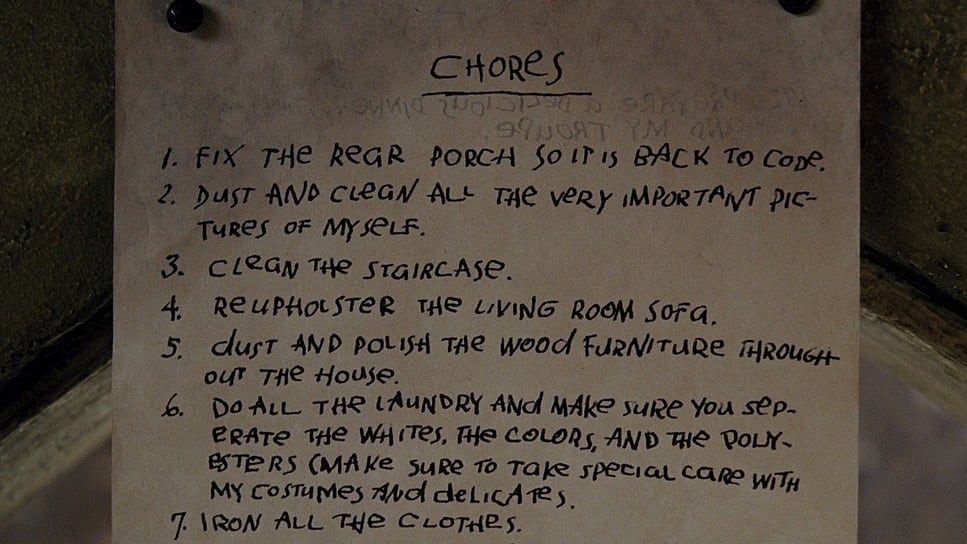 CHORES
PREPARE A DELICIOUS DINNER
AND MY TROUPE.
1. FIX THE REAR PORCH SO IT IS BACK TO CODE.
2. DUST AND CLEAN ALL THE VERY IMPORTANT PIC-
TURES OF MYSELF.
3. CLEAN THE STAIRCASE.
4. REUPHOLSTER THE LIVING ROOM SOFA.
5. DUST AND POLISH THE WOOD FURNITURE THROUGH-
OUT THE HOUSE.
6. DO ALL THE LAUNDRY AND MAKE SURE YOU SEP-
ERATE THE WHITES, THE COLORS, AND THE POLY-
ESTERS (MAKE SURE TO TAKE SPECIAL CARE WITH
MY COSTUMES AND DELICATES.
7. IRON ALL THE CLOTHES.